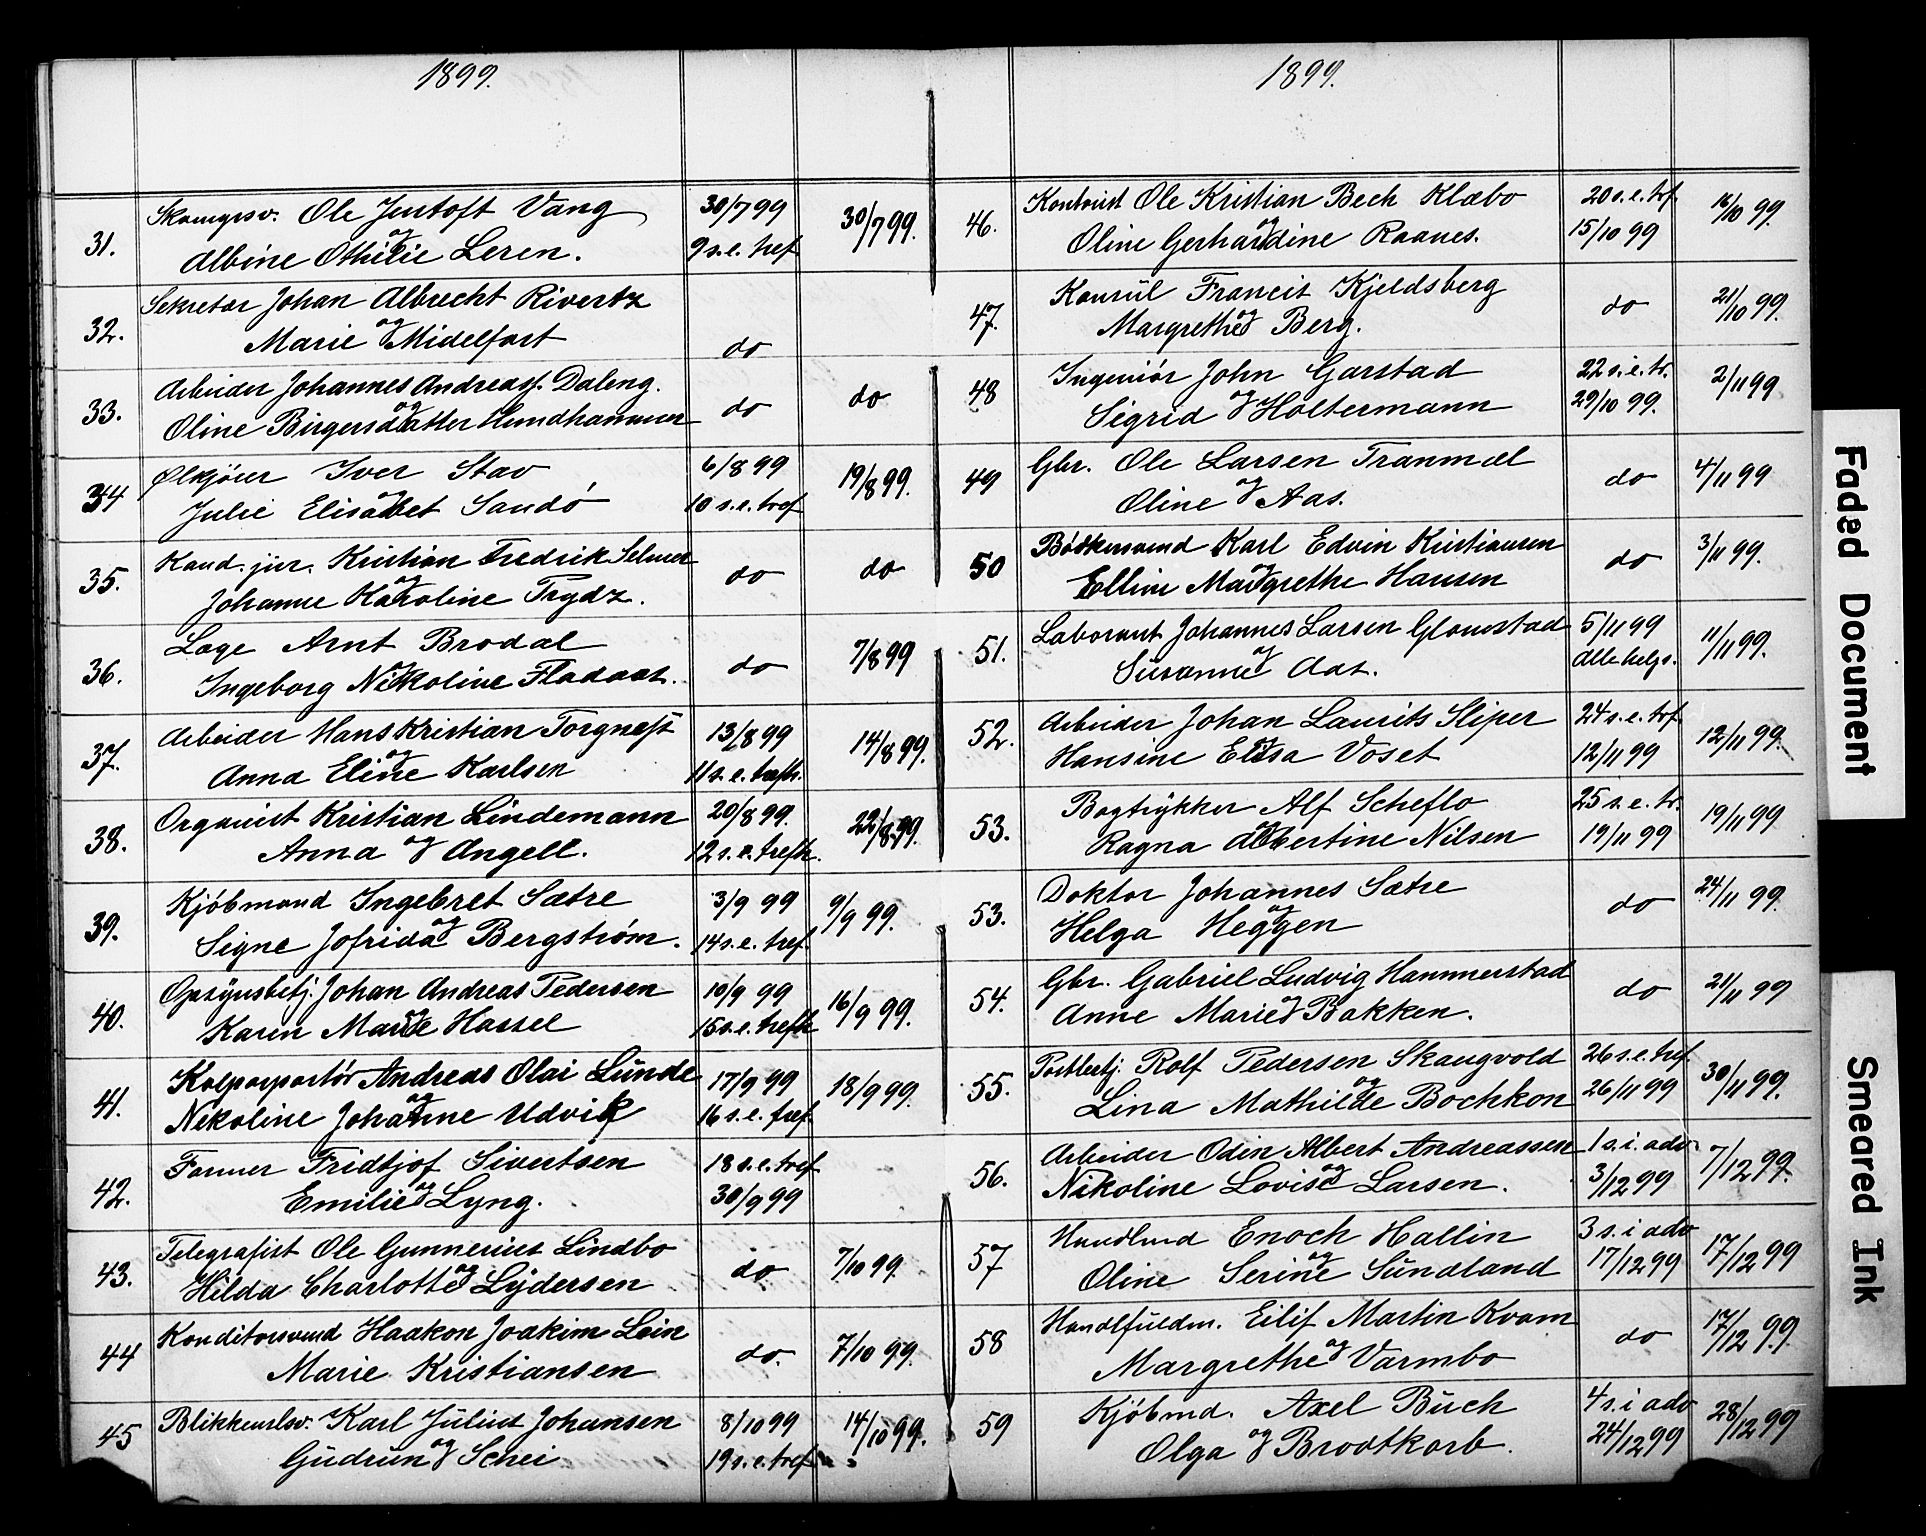 1899.
31. Ole Jentoft Vang 30/7 99 30/7 99.
og
Albine Othilie Leren. 9 s. e. tref
32. Sekretær Johan Albrecht Rivertz do
og
Marie Midelfart
33. Arbeider Johannes Andreas J. Daleng. do do
og
Oline Birgersdatter Hundhammer
34 Ølkjörer Iver Stav 6/8 99 19/8 99.
og
Julie Elisabet Sandö 10 s. e. tref
35. Kand. jur. Kristian Fredrik Selmer do do
og
Johanne Karoline Trydz.
36. Læge Arnt Brodal do 7/8 99
og
Ingeborg Nikoline Fladaas.
37. Arbeider Hans Kristian Torgnesst 13/8 99 14/8 99.
og
Anna Eline Karlsen 11 s. e. trefh.
38. Organist Kristian Lindemann 20/8 99. 22/8 99.
Anna og Angell. 12 s. e. trefh.
39. Kjöbmand Ingebret Sætre 3/9 99 9/9 99.
og
Signe Jofrida Bergström. 14 s. e. tref.
40. Opsynsbetj. Johan Andreas Pedersen 10/9 99 16/9 99.
og
Karen Marie Hassel 15 s. e. trefh
41. Kolporportör Andreas Olai Lunde 17/9 99 18/9 99.
og
Nikoline Johanne Udvik 16 s. e. tref.
42. Former Fridtjof Sivertsen 18 s. e. tref
Emilie og Lyng. 30/9 99
43. Telegrafist Ole Gunnerius Lindbo do 7/10 99.
Hilda Charlotte og Lydersen
44 Konditorsvend Haakon Joakim Lein do. 7/10 99.
Marie Kristiansen
45 Karl Julius Johansen 8/10 99 14/10 99.
Gudrun og Schei 19 s. e. tref
1899.
46. Kontorist Ole Kristian Bech Klæbo 20 s. e. tref. 16/10 99.
og
Oline Gerhardine Raanes. 15/10 99
47. Konsul Francis Kjeldsberg do 21/10 99.
Margrethe og Berg.
48 Ingeniör John Garstad 22 s. e. tr. 2/11 99
Sigrid og Holtermann 29/10 99.
49 Gbr. Ole Larsen Tranmæl do 4/11 99
Oline og Aas.
50 Bödkersvend Karl Edvin Kristiansen do 3/11 99.
og
Elline Margrethe Hansen
51. Laborant Johannes Larsen Glomstad 5/11 99 11/11 99.
Susanne og Aas. Allehelgs.
52. Arbeider Johan Laurits Sliper 24 s. e. tref 12/11 99.
og
Hansine Elisa Voset 12/11 99
53. Bogtrykker Alf Scheflo 25 s. e. tr. 19/11 99
og
Ragna Albertine Nilsen 19/11 99
53. Doktor Johannes Sætre do 24/11 99.
og
Helga Heggen
54. Gbr. Gabriel Ludvig Hammerstad do 21/11 99
Anne Marie og Bakken.
55. Postbetj. Rolf Pedersen Skaugvold 26 s. e. tref. 30/11 99.
og
Lina Mathilde Bochkon 26/11 99
56. Arbeider Odin Albert Andreassen 1 s. i. adv. 7/12 99.
Nikoline Lovise og Larsen. 3/12 99
57 Enoch Hallin 3 s. i adv 17/12 99
og
Oline Serine Sundland 17/12 99
58 Eilif Martin Kvam do 17/12 99.
Margrethe og Varmbo
59 Kjöbmd. Axel Buch 4 s. i adv 28/12 99
Olga og Brodtkorb. 24/12 99
Faded Document
Smeared Ink